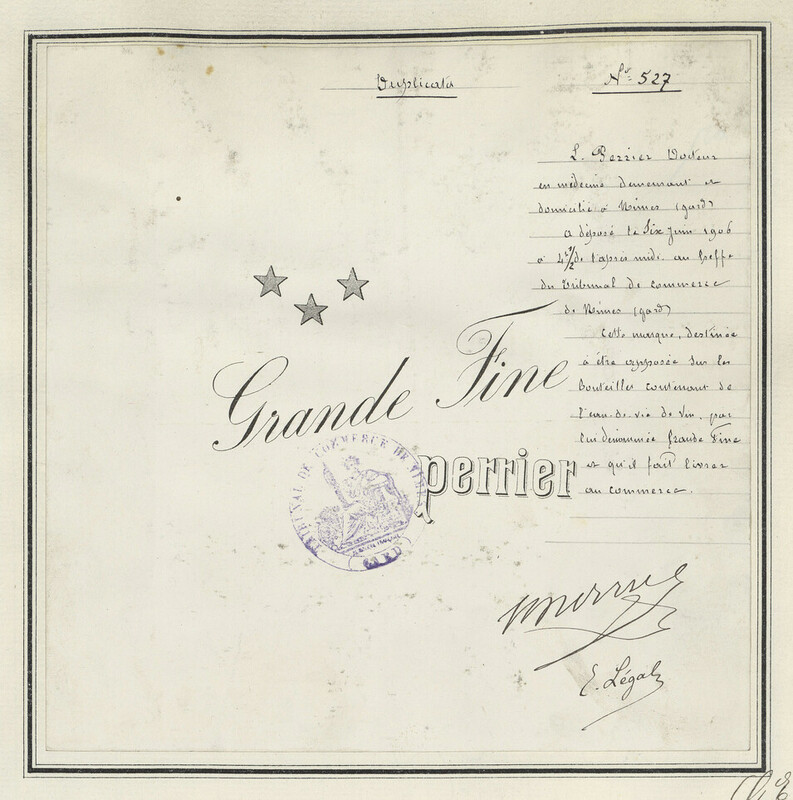 Duplicata
Nº 527
L. Perrier Docteur
en médecine demeurant et
domicilié à Nîmes (gard)
a déposé le Six Juin 1906
à 4h 1/2 de l'après midi au Greffe
du Tribunal de commerce
de Nîmes (gard)
Cette marque, destinée
à être apposée sur les
Bouteilles contenant de
l'eau-de-vie de vin, par
lui dénommée Grande Fine
et qu'il fait livrer
au commerce.
Grande Fine
perrier
TRIBUNAL DE COMMERCE DE NIMES
(GARD)
E. Légal